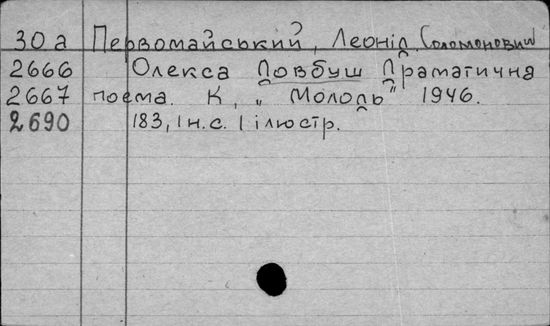 30 а Первомайський, Леонід Соломонович
2666 Олекса Довбуш Драматична
2667 поема. К, „Молодь" 1946.
2690 183, 1 н. с. 1 ілюстр.